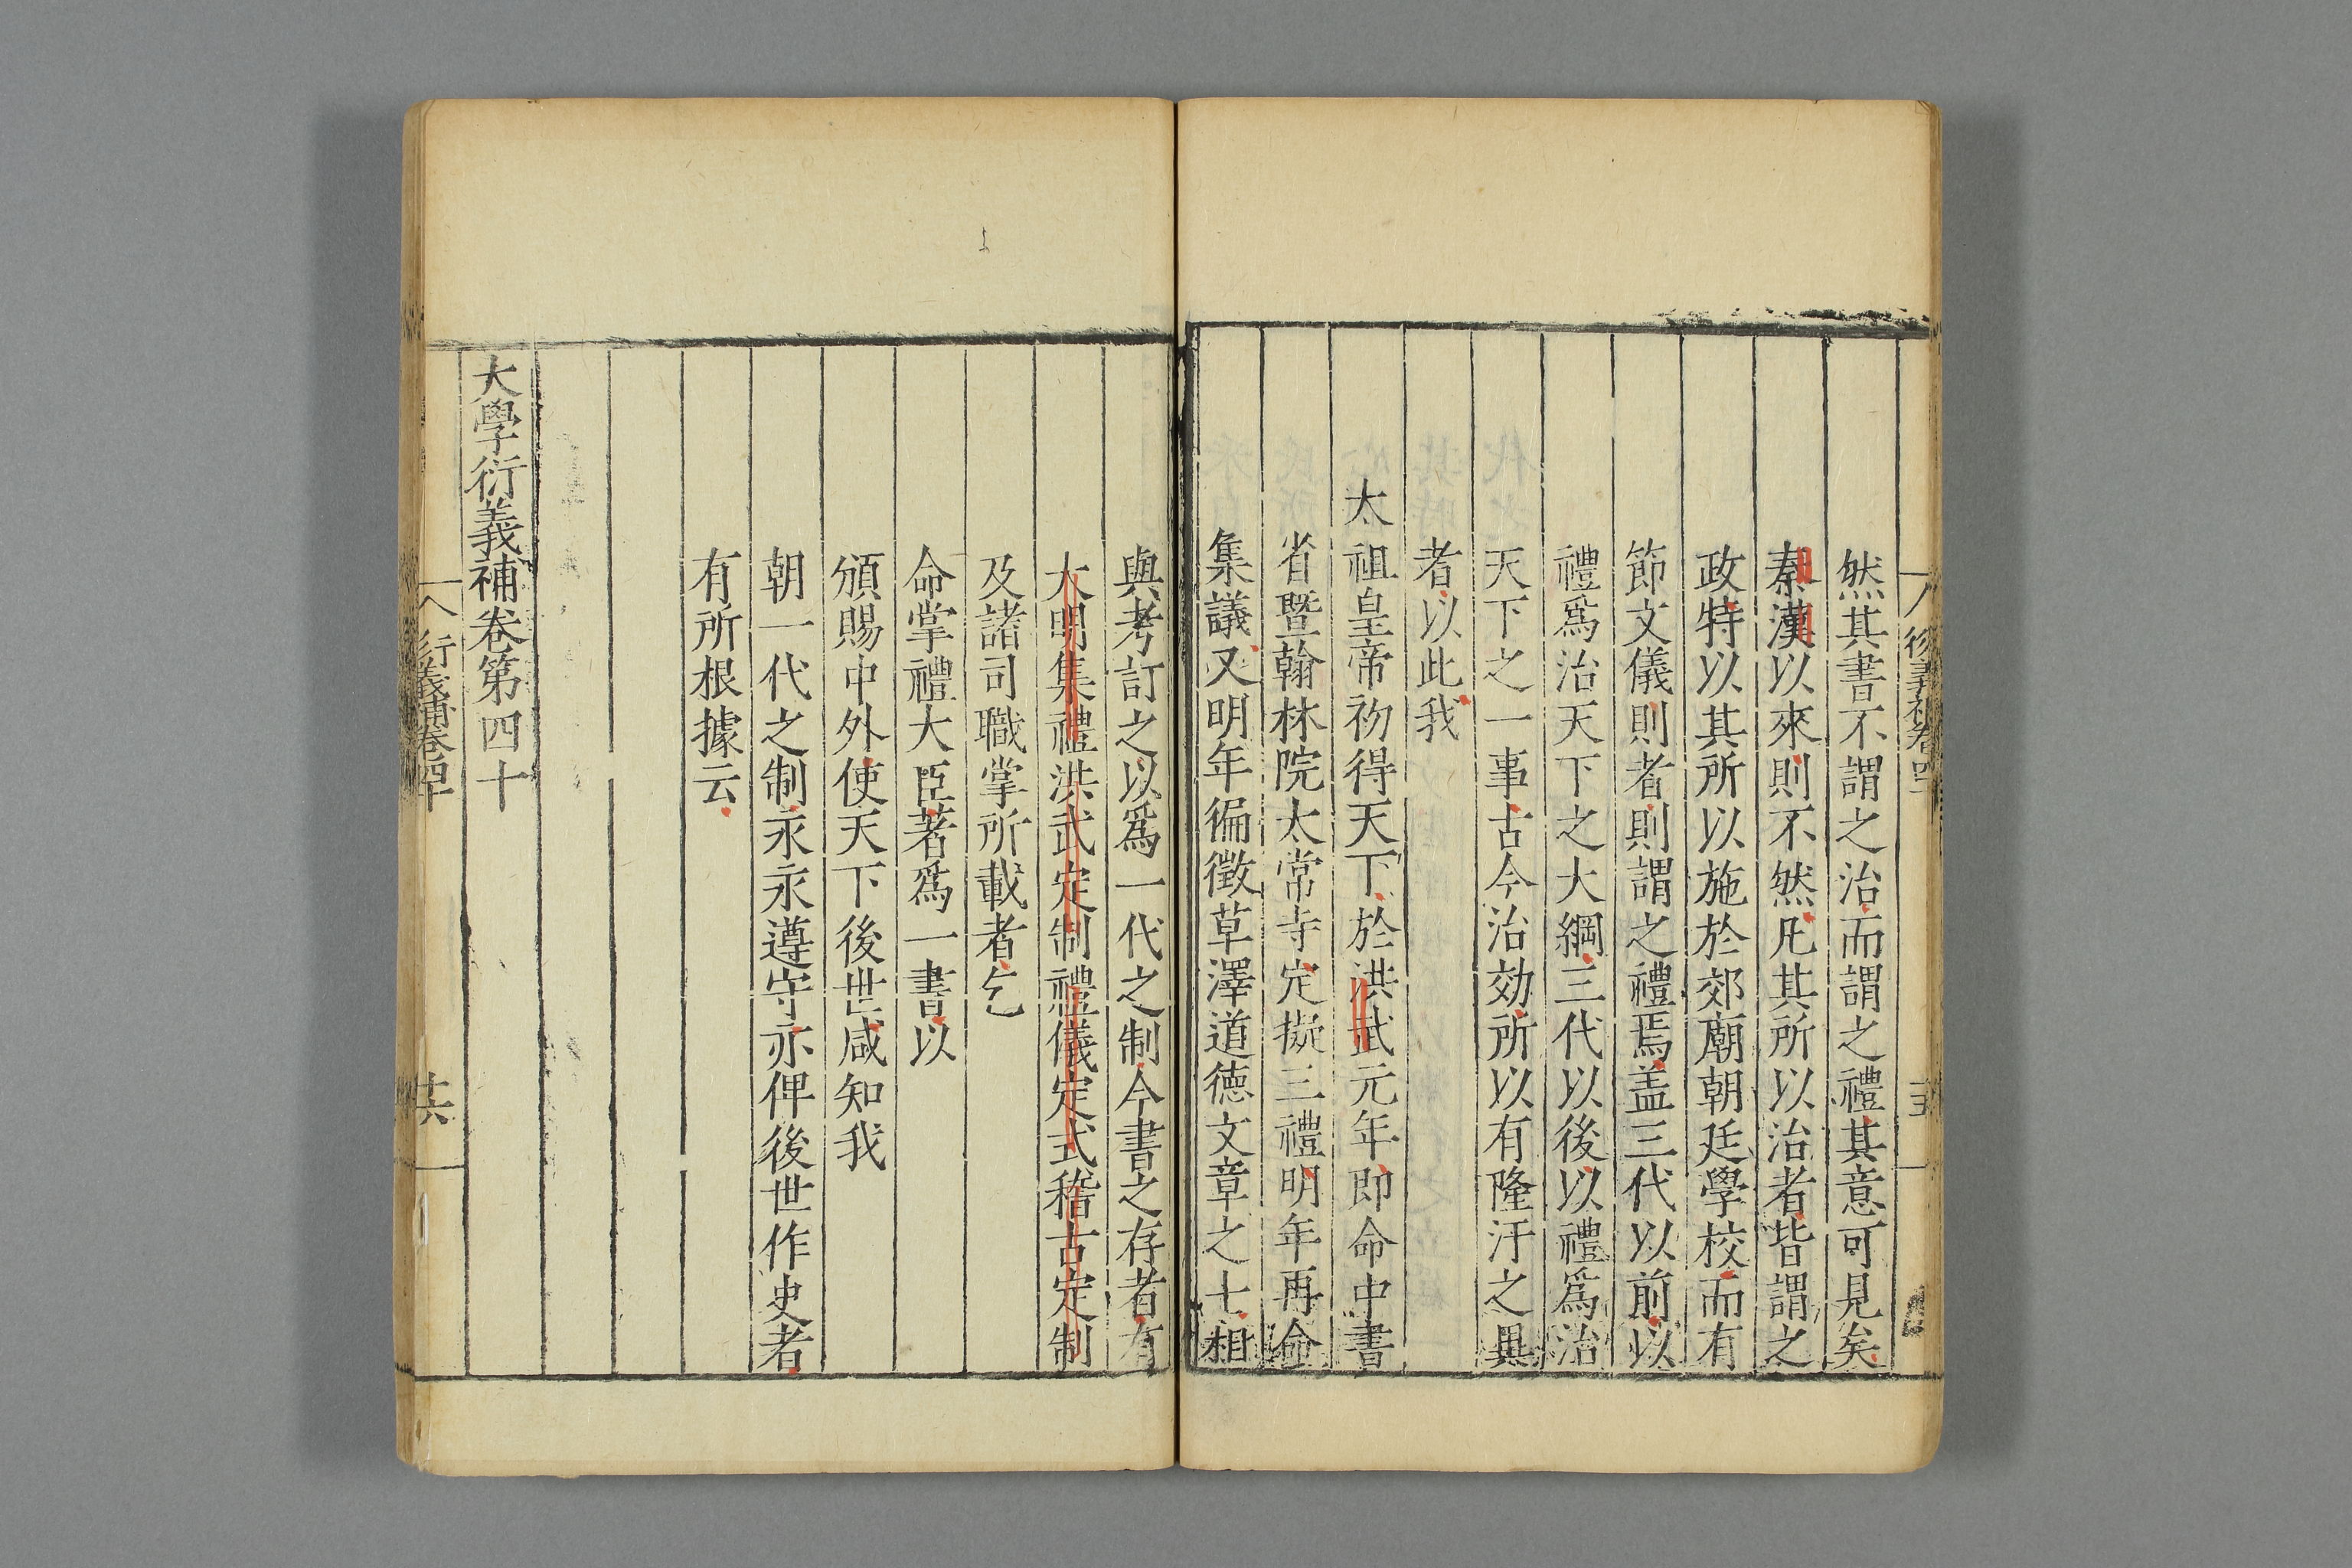 衍義補卷四十
十五
然其書不謂之治而謂之禮其意可見矣
秦漢以來則不然凡其所以治者皆謂之
政特以其所以施於郊廟朝廷學校而有
節文儀則者則謂之禮焉盖三代以前以
禮爲治天下之大綱三代以後以禮爲治
天下之一事古今治効所以有隆汙之異
者以此我
太祖皇帝初得天下於洪武元年即命中書
省暨翰林院太常寺定擬三禮明年再命
集議又明年徧徵草澤道德文章之士相
與考訂之以爲一代之制今書之存者有
大明集禮洪武定制禮儀定式稽古定制
及諸司職掌所載者乞
命掌禮大臣著爲一書以
頒賜中外使天下後世咸知我
朝一代之制永永遵守亦俾後世作史者
有所根據云
大學衍義補卷第四十
衍義補卷四十
十六